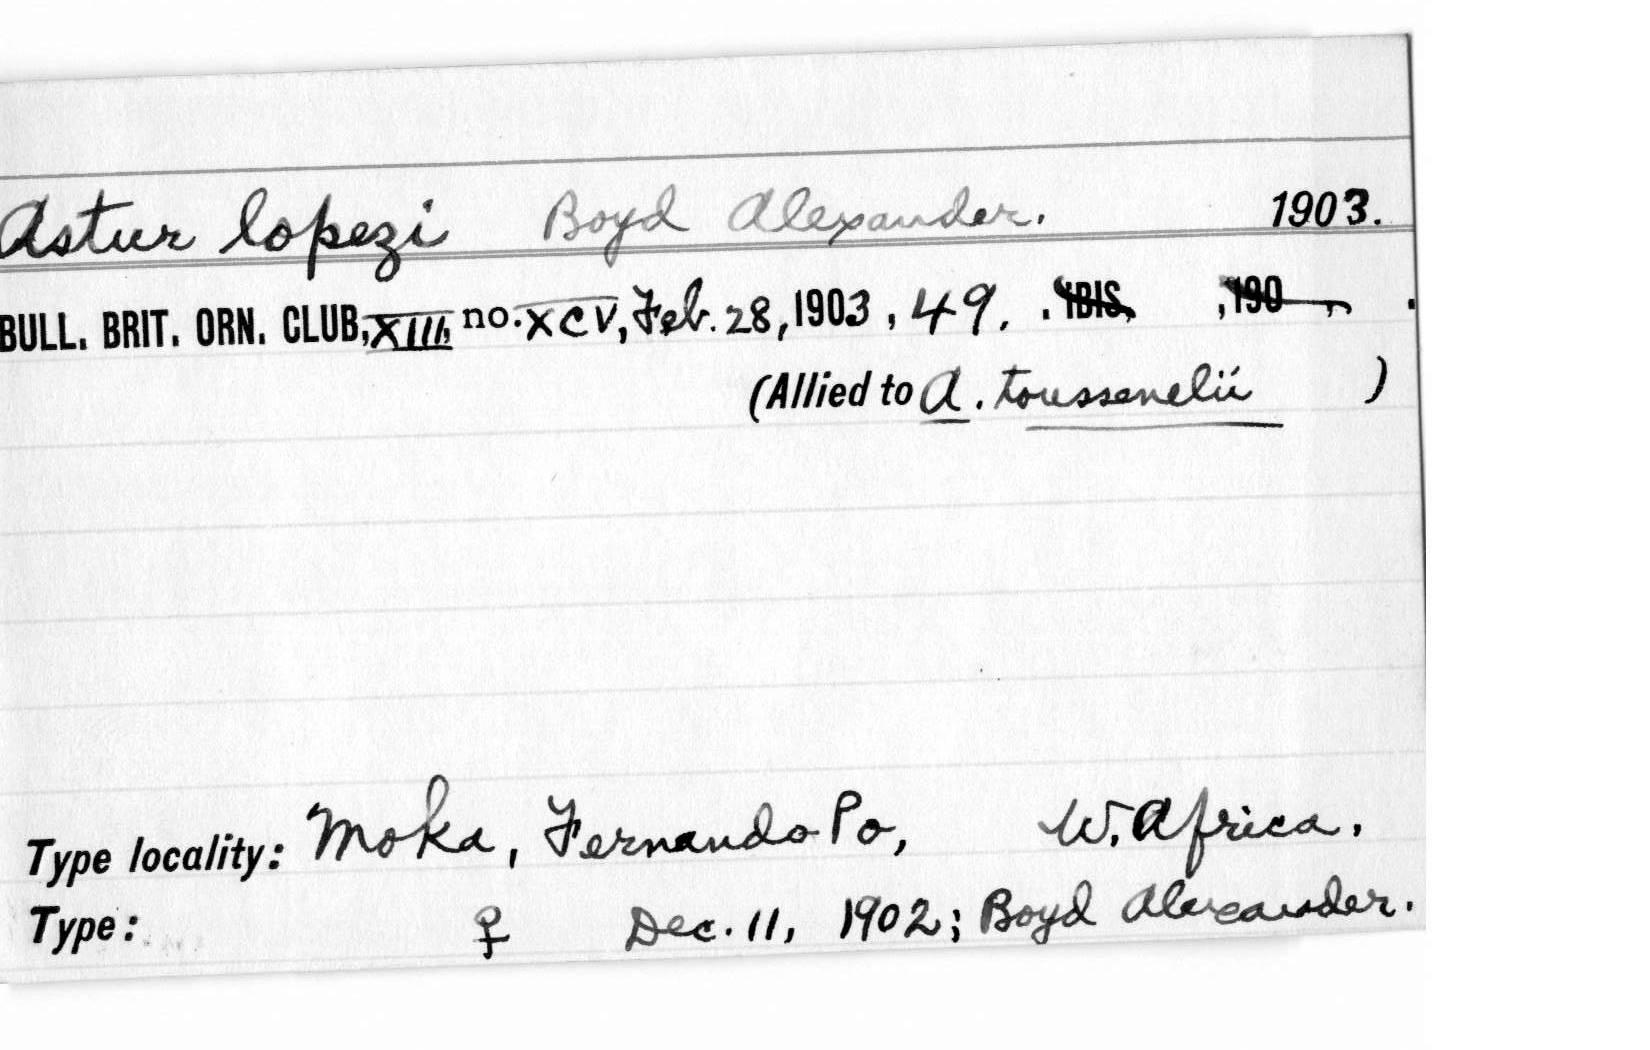 Astur lopezi Boyd Alexander. 1903.
BULL. BRIT. ORN. CLUB, XIII, no. XCV, Feb. 28, 1903, 49. . IBIS, ,190 , .
(Allied to A. toussenelii )
Type locality: Moka, Fernando Po, W. Africa.
Type: ♀ Dec. 11, 1902; Boyd Alexander.